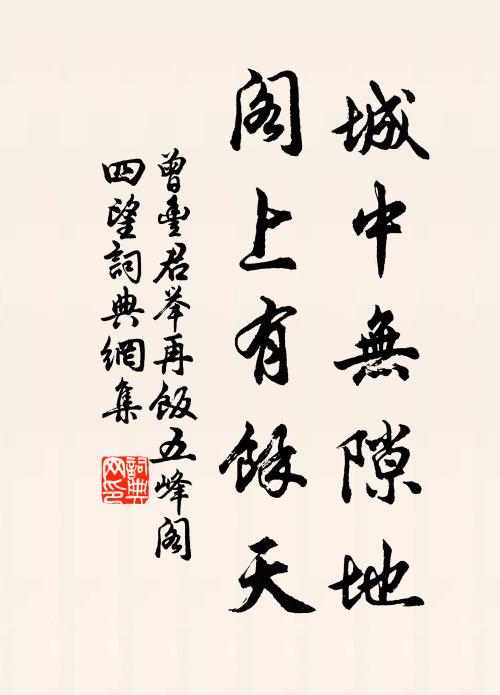 城中無隙地
閣上有餘天
曾豊君举再飯五峰閣
四望詞典網集
詞典网印